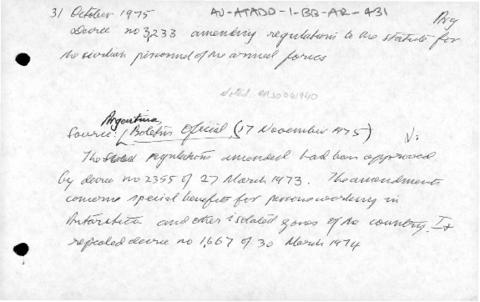 31 October 1975 AU-ATADD-1-BB-AR-431 Arg
Decree no 3,233 amending regulations to the statute for
the civilian personnel of the armed forces
Argentina,
Source: [Boletin Oficial (17 November 1975) N:
The stated regulations amended had been approved
by decree no 2355 of 27 March 1973. The amendments
concerns special benefits for persons working in
Antarctica and other isolated zones of the country. It
repealed decree no 1,667 of 30 March 1974